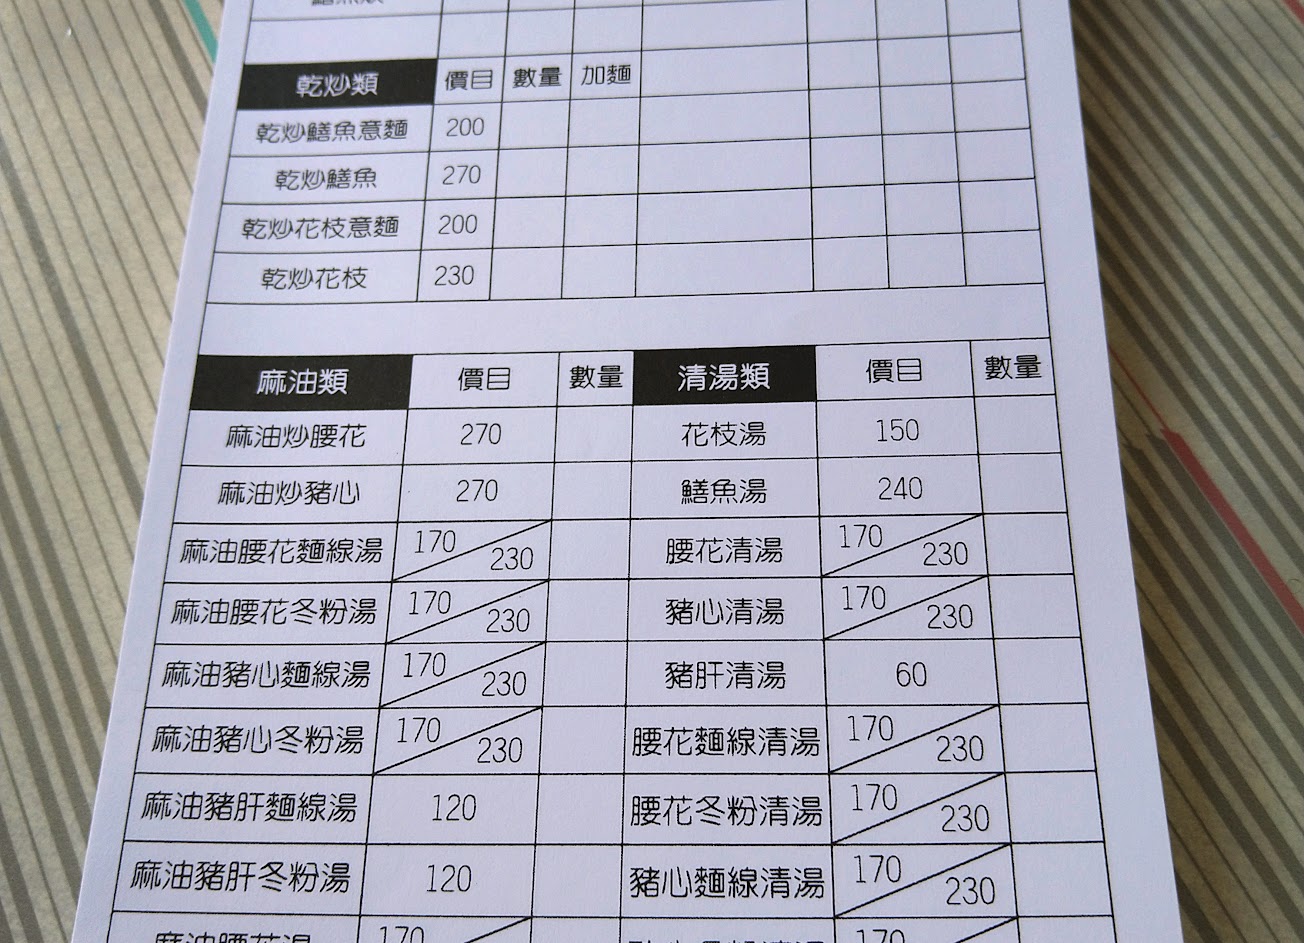 乾炒類 價目 數量 加麵
乾炒鱔魚意麵 200
乾炒鱔魚 270
乾炒花枝意麵 200
乾炒花枝 230
麻油類 價目 數量 清湯類 價目 數量
麻油炒腰花 270 花枝湯 150
麻油炒豬心 270 鱔魚湯 240
麻油腰花麵線湯 170 230 腰花清湯 170 230
麻油腰花冬粉湯 170 230 豬心清湯 170 230
麻油豬心麵線湯 170 230 豬肝清湯 60
麻油豬心冬粉湯 170 230 腰花麵線清湯 170 230
麻油豬肝麵線湯 120 腰花冬粉清湯 170 230
麻油豬肝冬粉湯 120 豬心麵線清湯 170 230
麻油腰花湯 170 170